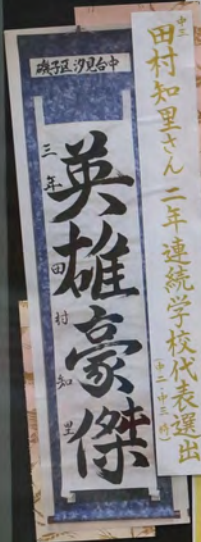 中三
田村知里さん 二年連続学校代表選出
(中二・中三時)
磯子区汐見台中
英雄豪傑
三年 田村知里